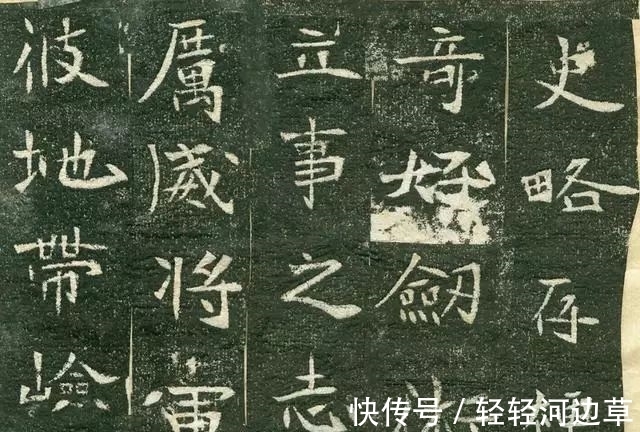 史略存
奇劒
立事之志
厲威將軍
彼地帶嶮
快传号 / 轻轻河边草